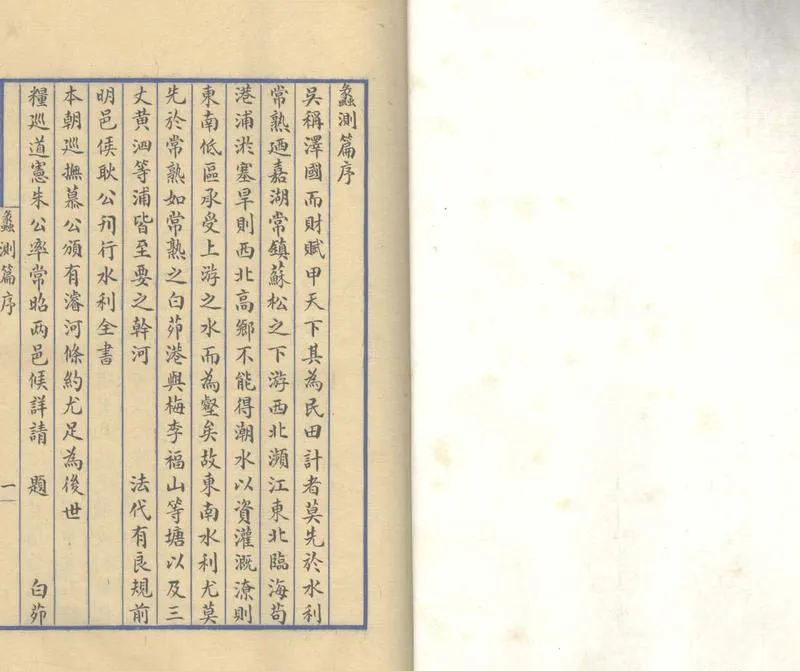 蠡測篇序
吳稱澤國而財賦甲天下其為民田計者莫先於水利
常熟廼嘉湖常鎮蘇松之下游西北瀕江東北臨海苟
港浦淤塞旱則西北高鄉不能得潮水以資灌溉潦則
東南低區承受上游之水而為壑矣故東南水利尤莫
先於常熟如常熟之白茆港與梅李福山等塘以及三
丈黄泗等浦皆至要之幹河　法代有良規前
明邑侯耿公刋行水利全書
本朝巡撫慕公頒有濬河條約尤足為後世
糧巡道憲朱公率常昭两邑侯詳請　題　白茆
蠡測篇序　一